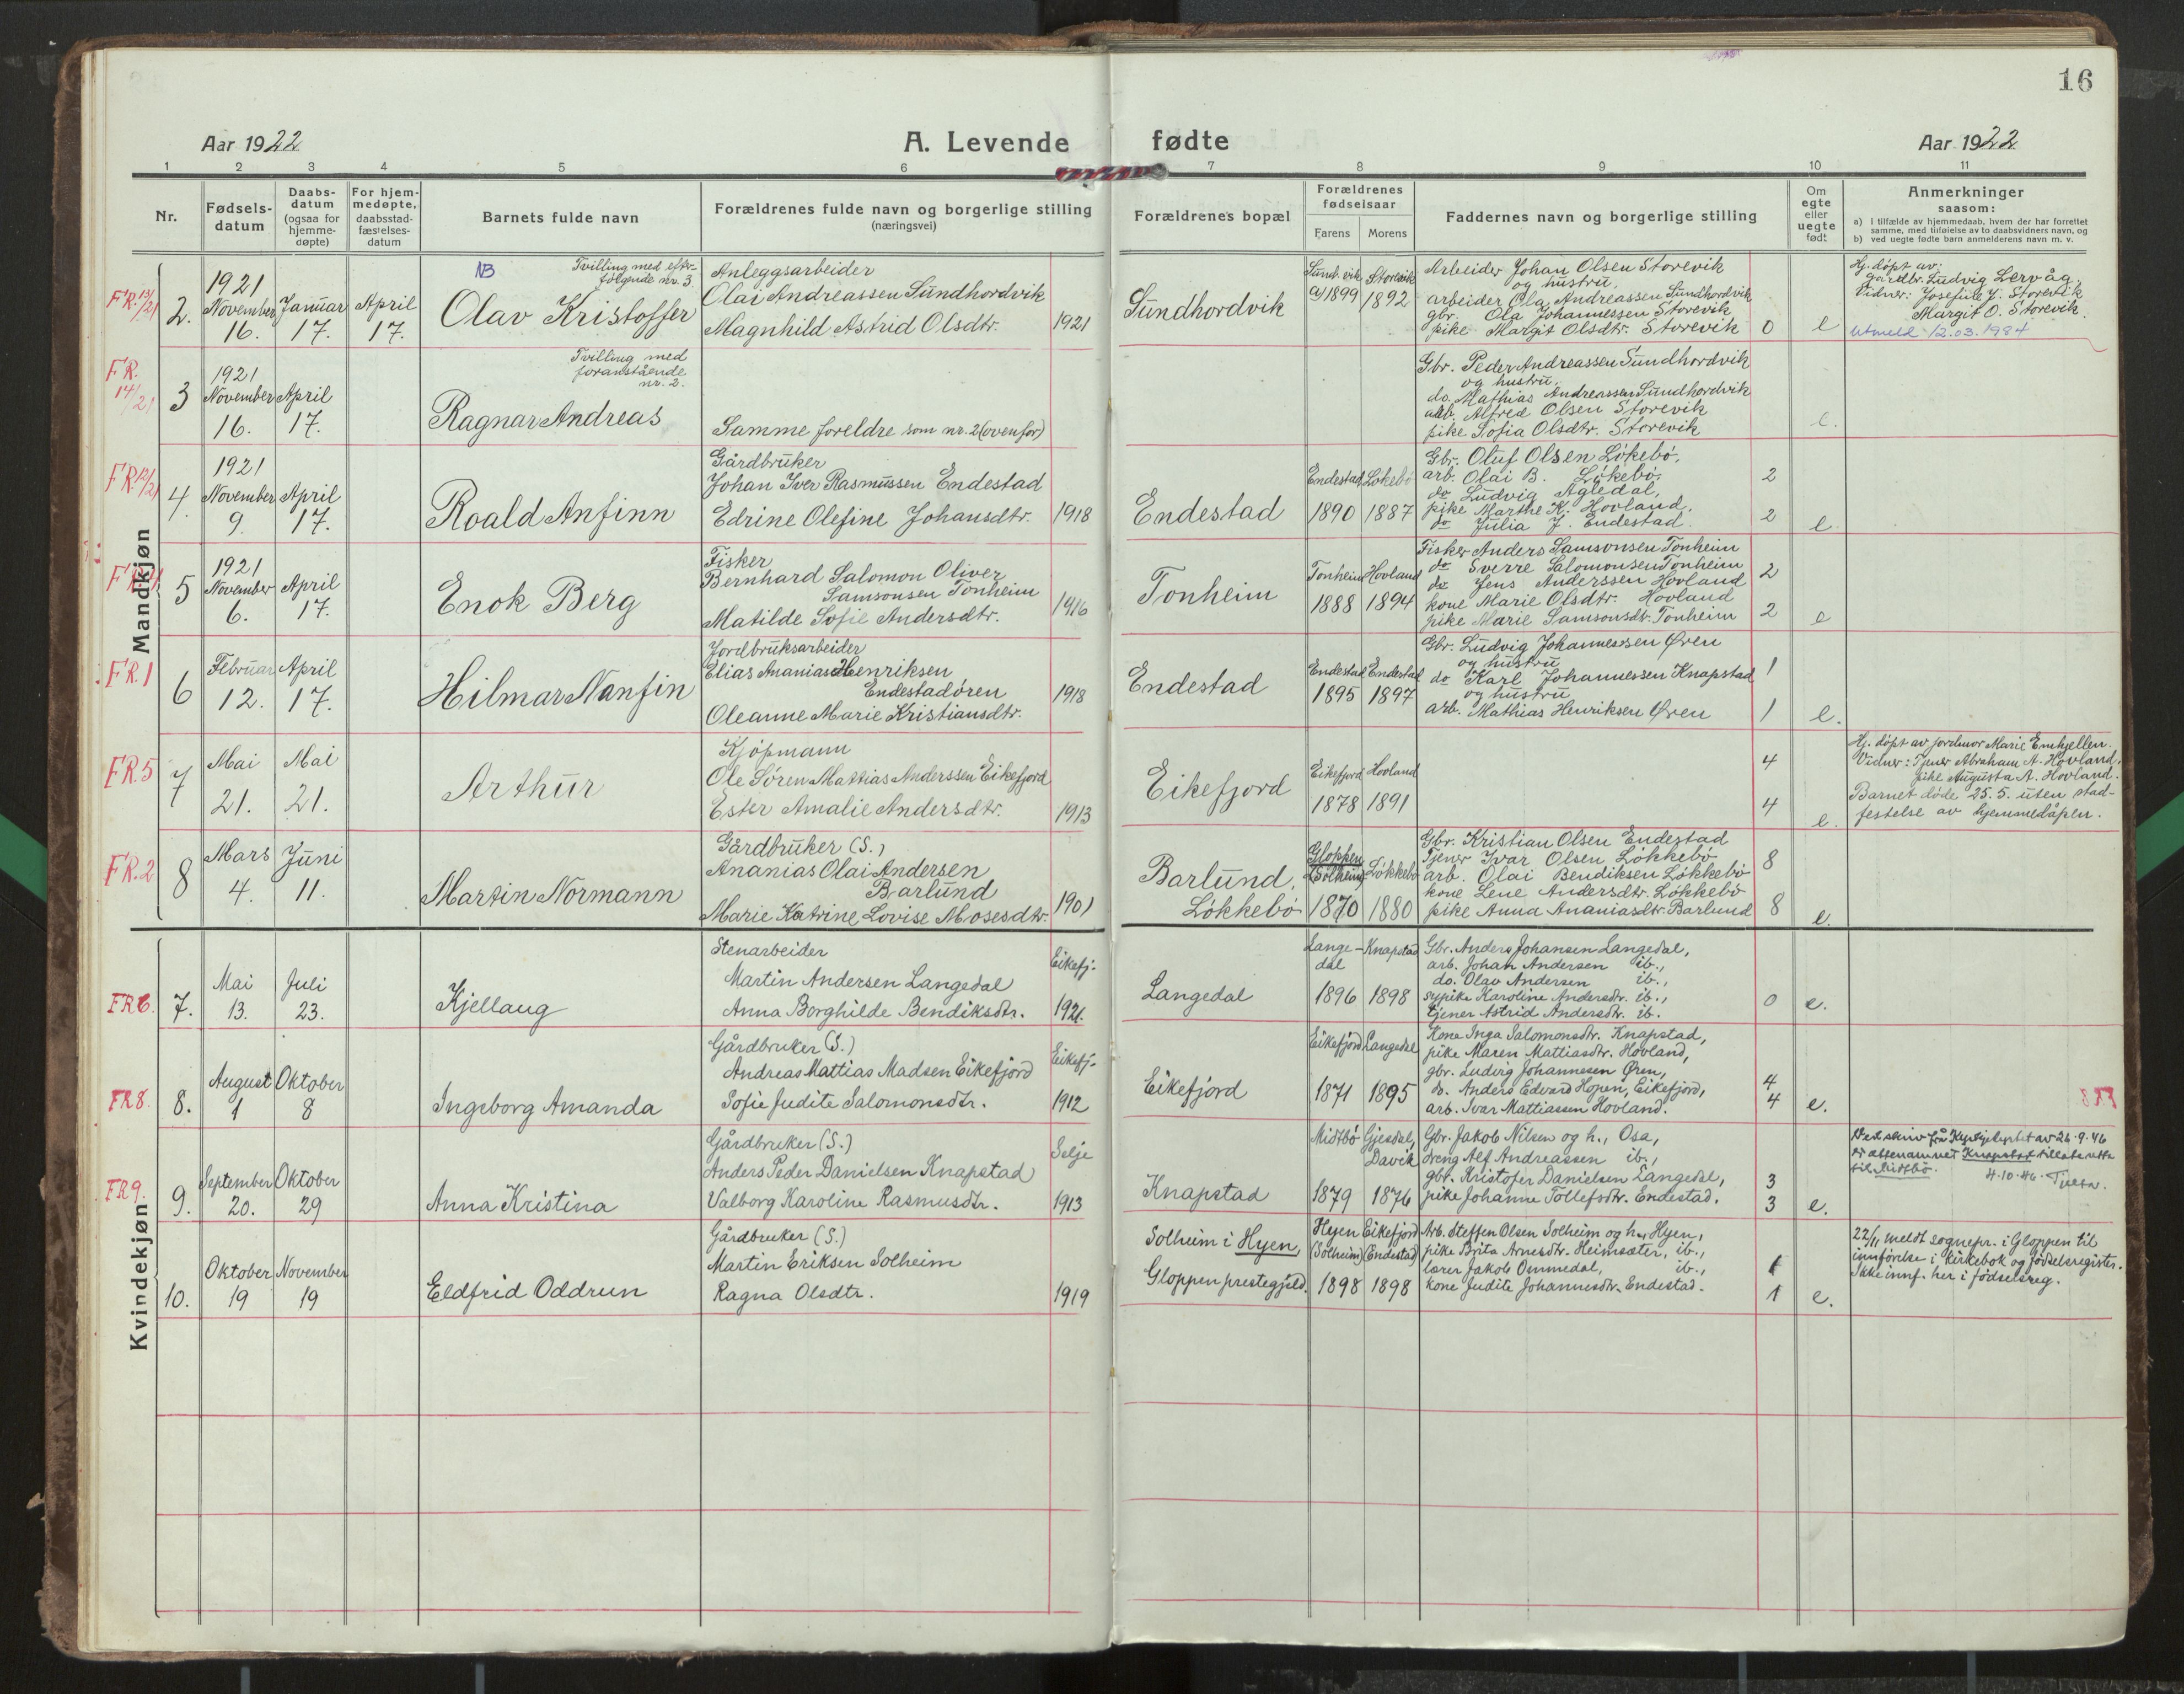 16
Aar 1922
A. Levende fødte
Aar 1922
1 2 3 4 5 6 7 8 9 10 11
Nr.
Fødsels-
datum
Daabs-
datum
(ogsaa for
hjemme-
døpte)
For hjem-
medøpte,
daabsstad-
fæstelses-
datum
Barnets fulde navn
Forældrenes fulde navn og borgerlige stilling
(næringsvei)
Forældrenes bopæl
Forældrenes
fødselsaar
Farens Morens
Faddernes navn og borgerlige stilling
Om
egte
eller
uegte
født
Anmerkninger
saasom:
a) I tilfælde av hjemmedaab, hvem der har forrettet
samme, med tilføielse av to daabsvidners navn, og
b) ved uegte fødte barn anmelderens navn m. v.
Mandkjøn
FR. 13/21
2.
1921
November
16.
Januar
17.
April
17.
NB
Tvilling med efter-
følgende nr. 3
Olav Kristoffer
Anleggsarbeider
Olai Andreassen Sundhordvik
Magnhild Astrid Olsdtr. 1921
Sundhordvik
Sundh.vik
1899
Storevik
1892
Arbeider Johan Olsen Storevik
og hustru,
arbeider Ola Andreassen Sundhordvik
gbr. Ola Johannessen Storevik
pike Margit Olsdtr. Storevik
0
e
Hj. døpt av:
gardbr. Ludvig Lervåg,
Vidner: Josefine J. Storevik
Margit O. Storevik.
Utmeld 12.03.1984
FR.
14/21
3
1921
November
16.
April
17.
Tvilling med
foranstående
nr. 2.
Ragnar Andreas
Samme foreldre som nr. 2 (ovenfor)
Gbr. Peder Andreassen Sundhordvik
og hustru,
do. Mathias Andreassen Sundhordvik
arb. Alfred Olsen Storevik
pike Sofia Olsdtr. Storevik
e.
FR 12/21
4.
1921
November
9.
April
17.
Roald Anfinn
Gårdbruker
Johan Iver Rasmussen Endestad
Edrine Olefine Johansdtr. 1918
Endestad
Endestad
1890
Løkebø
1887
Gbr. Oluf Olsen Løkebø,
arb. Olai B. Løkebø,
do Ludvig Agledal,
pike Marthe K. Hovland,
do Julia J. Endestad.
2
2
e
5
1921
November
6.
April
17.
Enok Berg
Fisker
Bernhard Salomon Oliver
Samsonsen Tonheim
Matilde Sofie Andersdtr. 1916
Tonheim
Tonheim
1888
Hovland
1894
Fisker Anders Samsonsen Tonheim
do Sverre Salomonsen Tonheim
do Jens Anderssen Hovland
kone Marie Olsdtr. Hovland
pike Marie Samsonsdtr. Tonheim
2
2
e
FR. 1
6
Februar
12.
April
17.
Hilmar Nanfin
Jordbruksarbeider
Elias Ananias Henriksen
Endestadøren
Oleanne Marie Kristiansdtr. 1918
Endestad
Endestad
1895
Endestad
1897
Gbr. Ludvig Johannessen Øren
og hustru
do Karl Johannessen Knapstad
og hustru
arb. Mathias Henriksen Øren
1
1
e.
FR. 5
7
Mai
21.
Mai
21.
Arthur
Kjøpmann
Ole Søren Mattias Anderssen Eikefjord
Ester Amalie Andersdtr. 1913
Eikefjord
Eikefjord
1878
Hovland
1891
4
4
e.
Hj. døpt av jordmor Marie Emhjellen.
Vidner: Tjener Abraham A. Hovland,
pike Augusta A. Hovland.
Barnet døde 25.5. uten stad-
festelse av hjemmedåpen.
FR. 2
8
Mars
4.
Juni
11.
Martin Normann
Gårdbruker (S.)
Ananias Olai Andersen
Barlund
Marie Katrine Lovise Mosesdtr. 1901
Barlund,
Løkkebø
Gloppen
(Solheim)
1870
Løkkebø
1880
Gbr. Kristian Olsen Endestad
Tjener Ivar Olsen Løkkebø
arb. Olai Bendiksen Løkkebø
kone Lene Andersdtr. Løkkebø
pike Anna Ananiasdtr. Barlund
8
8
e.
Kvindekjøn
FR 6.
7.
Mai
13.
Juli
23.
Kjellaug
Stenarbeider
Martin Andersen Langedal
Anna Borghilde Bendiksdtr.
Eikefj.
1921.
Langedal
Lange-
dal
1896
Knapstad
1898
Gbr. Anders Johansen Langedal,
arb. Johan Andersen ib.,
do. Olav Andersen ib.,
sypike Karoline Andersdtr. ib.,
tjener Astrid Andersdtr. ib.
0
e.
FR 8.
8.
August
1
Oktober
8
Ingeborg Amanda
Gårdbruker (S.)
Andreas Mattias Madsen Eikefjord
Sofie Judite Salomonsdtr.
Eikefj.
1912
Eikefjord
Eikefjord
1871
Langedal
1895
Kone Inga Salomonsdtr. Knapstad,
pike Maren Mattiasdtr. Hovland,
gbr. Ludvig Johannesen Øren,
do. Anders Edvard Hopen, Eikefjord,
arb. Ivar Mattiassen Hovland.
4
4
e.
FR 9.
9.
September
20.
Oktober
29
Anna Kristina
Gårdbruker (S.)
Anders Peder Danielsen Knapstad
Valborg Karoline Rasmusdtr.
Selje
1913
Knapstad
Midtbø
1879
Gjesdal,
Davik
1876
Gbr. Jakob Nilsen og h., Osa,
dreng Alf Andreassen ib.,
gbr. Kristofer Danielsen Langedal,
pike Johanne Tollefsdtr. Endestad.
3
3
e.
Ved skriv frå Kyrkjedept. av 26.9.46
er ættenamnet Knapstad tillate rette
til Midtbø.
4.10.46.
10.
Oktober
19
November
19
Eldfrid Oddrun
Gårdbruker (S.)
Martin Eriksen Solheim
Ragna Olsdtr. 1919
Solheim i Hyen,
Gloppen prestegjeld.
Hyen
(Solheim)
1898
Eikefjord
(Endestad)
1898
Arb. Steffen Olsen Solheim og h., Hyen,
pike Brita Arnesdtr. Heimsæter, ib.,
lærer Jakob Ommedal, ib.,
kone Judite Johannesdtr. Endestad.
1
1
e.
22/11 meldt sognepr. i Gloppen til
innførelse i kirkebok og fødselsregister.
Ikke innf. her i fødselsreg.